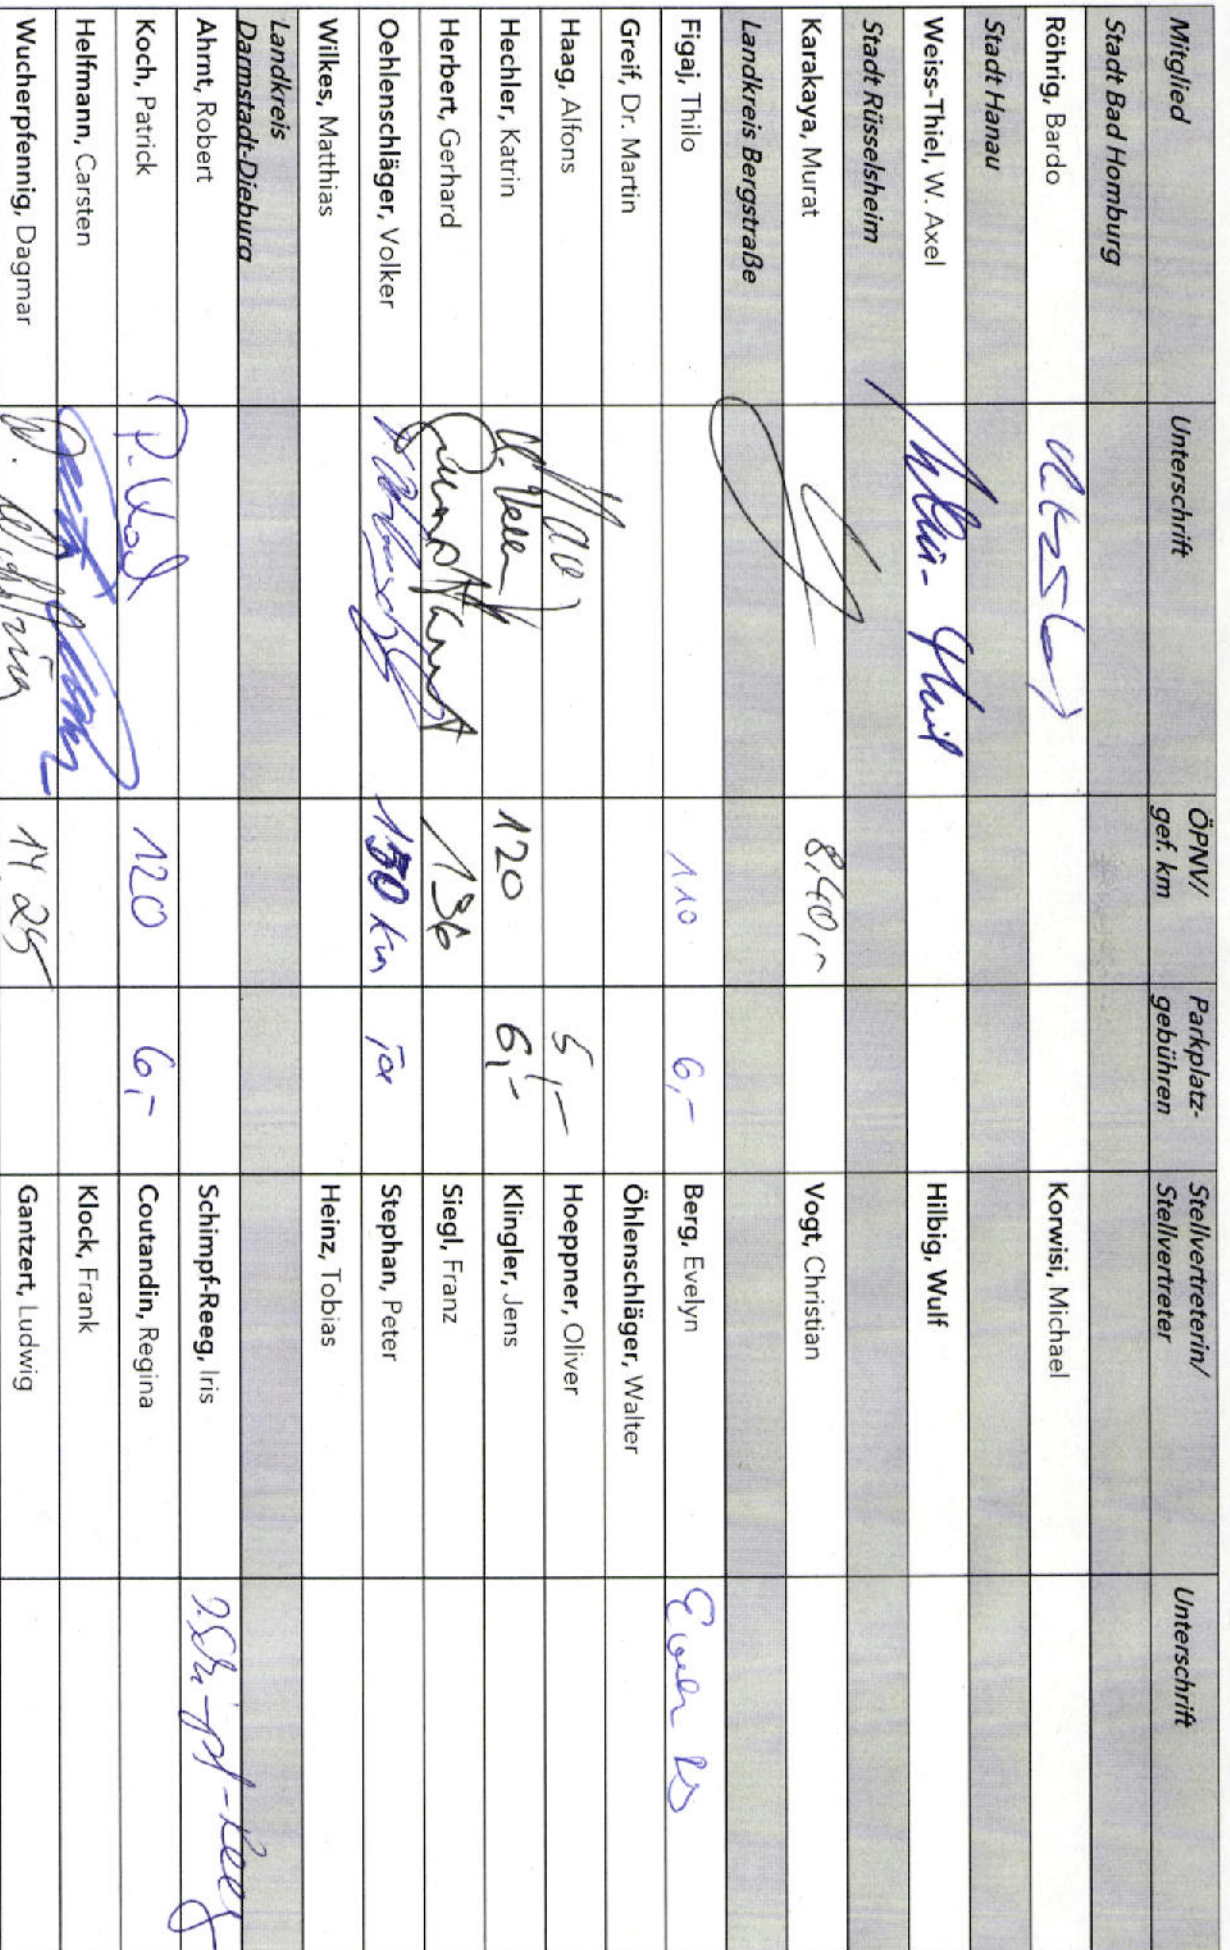 Mitglied Unterschrift ÖPNV/ gef. km Parkplatz- gebühren Stellvertreterin/ Stellvertreter Unterschrift
Stadt Bad Homburg
Röhrig, Bardo Korwisi, Michael
Stadt Hanau
Weiss-Thiel, W. Axel Weiss-Thiel Hilbig, Wulf
Stadt Rüsselsheim
Karakaya, Murat 8,40,- Vogt, Christian
Landkreis Bergstraße
Figaj, Thilo 110 6,- Berg, Evelyn
Greif, Dr. Martin Öhlenschläger, Walter
Haag, Alfons 5,- Hoeppner, Oliver
Hechler, Katrin 120 6,- Klingler, Jens
Herbert, Gerhard 136 Siegl, Franz
Oehlenschläger, Volker 130 km ja Stephan, Peter
Wilkes, Matthias Heinz, Tobias
Landkreis
Darmstadt-Dieburg
Ahrnt, Robert Schimpf-Reeg, Iris I. Schimpf-Reeg
Koch, Patrick P. Koch 120 6,- Coutandin, Regina
Helfmann, Carsten Klock, Frank
Wucherpfennig, Dagmar 14,25 Gantzert, Ludwig